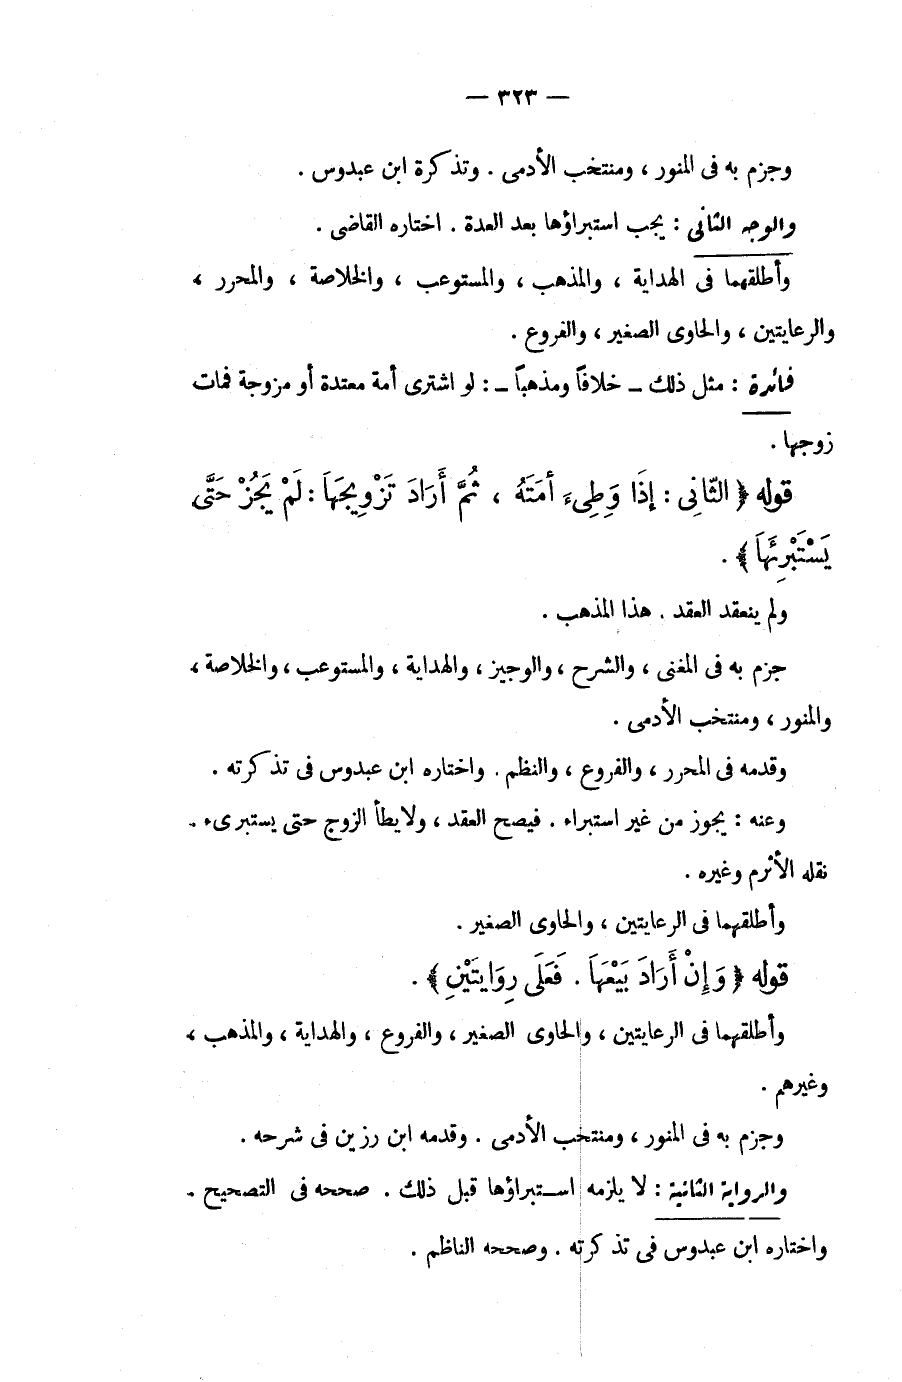 — ٣٢٣ —
وجزم به فى المنور ، ومنتخب الأدمى . وتذكرة ابن عبدوس .
والوجه الثانى : يجب استبراؤها بعد العدة . اختاره القاضى .
وأطلقهما فى الهداية ، والمذهب ، والمستوعب ، والخلاصة ، والمحرر ،
والرعايتين ، والحاوى الصغير ، والفروع .
فائدة : مثل ذلك – خلافاً ومذهباً – : لو اشترى أمة معتدة أو مزوجة فمات
زوجها .
قوله ﴿ الثَّانِى : إِذَا وَطِىءَ أَمَتَهُ ، ثُمَّ أَرَادَ تَزْوِيجَهَا : لَمْ يَجُزْ حَتَّى
يَسْتَبْرِئَهَا ﴾ .
ولم ينعقد العقد . هذا المذهب .
جزم به فى المغنى ، والشرح ، والوجيز ، والهداية ، والمستوعب ، والخلاصة ،
والمنور ، ومنتخب الأدمى .
وقدمه فى المحرر ، والفروع ، والنظم . واختاره ابن عبدوس فى تذكرته .
وعنه : يجوز من غير استبراء . فيصح العقد ، ولا يطأ الزوج حتى يستبرىء .
نقله الأثرم وغيره .
وأطلقهما فى الرعايتين ، والحاوى الصغير .
قوله ﴿ وَإِنْ أَرَادَ بَيْعَهَا . فَعَلَى رِوَايَتَيْنِ ﴾ .
وأطلقهما فى الرعايتين ، والحاوى الصغير ، والفروع ، والهداية ، والمذهب ،
وغيرهم .
وجزم به فى المنور ، ومنتخب الأدمى . وقدمه ابن رزين فى شرحه .
والرواية الثانية : لا يلزمه استبراؤها قبل ذلك . صححه فى التصحيح .
واختاره ابن عبدوس فى تذكرته . وصححه الناظم .